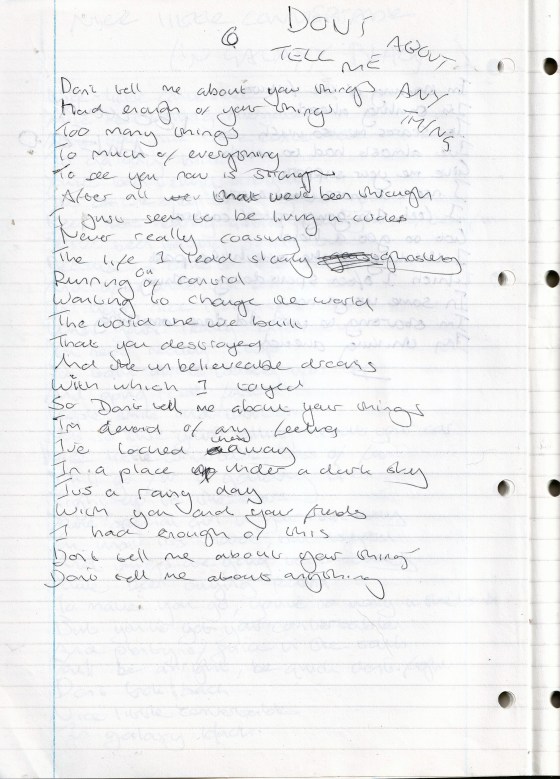 6
DONT
TELL ME ABOUT
ANY
THING
Dont tell me about your things
Had enough of your things
Too many things
To much of everything
To see you now is strange
After all that weve been through
I just seem to be living in codes
Never really coasing
The life I lead slowly
Running on
Wanting to change the world
The world the we built
That you destroyed
And the unbelieveable dreams
With which I toyed
So Dont tell me about your things
Im devoid of any feelings
I've locked them away
In a place under a dark sky
Jus a rainy day
With you and your
I had enough of this
Dont tell me about your thing
Dont tell me about anything